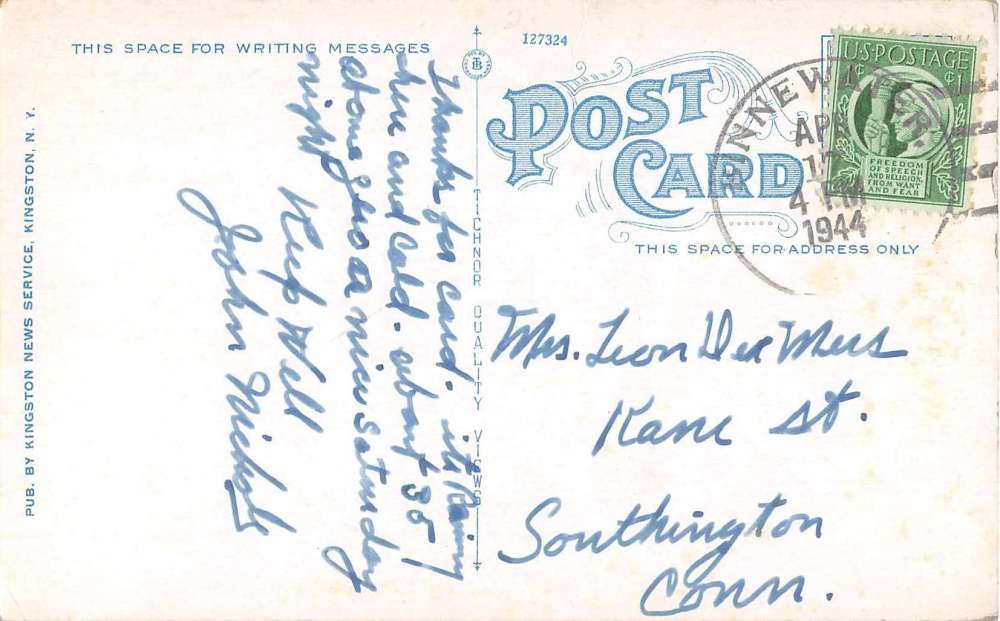 THIS SPACE FOR WRITING MESSAGES
Thanks for card. its Rainy
here and Cold. about 35
at one nice Saturday
night
Keep Well
John Nichols
PUB. BY KINGSTON NEWS SERVICE, KINGSTON, N. Y.
TICHNOR QUALITY VIEWS
127324
POST CARD
THIS SPACE FOR ADDRESS ONLY
BINNEWATER.
APR
17
4 PM
1944
U.S. POSTAGE
1¢ ¢1
FREEDOM
OF SPEECH
AND RELIGION,
FROM WANT
AND FEAR
Mrs. Leon
Kane St.
Southington
Conn.